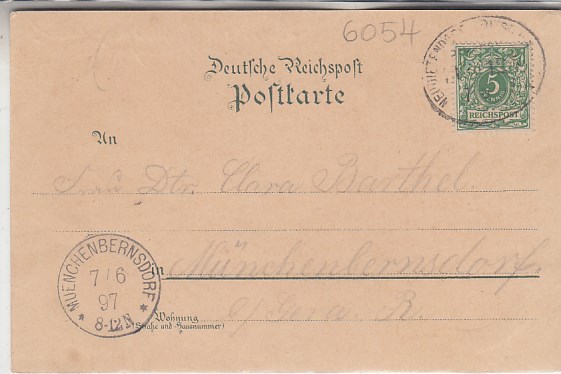 6054
Deutsche Reichspost
Postkarte
5
REICHSPOST
An
Frau Dtr. Clara Barthel.
MUENCHENBERNSDORF
7/6
97
8-12N
in Münchenbernsdorf.
b/Gera. R.
Wohnung
(Straße und Hausnummer)